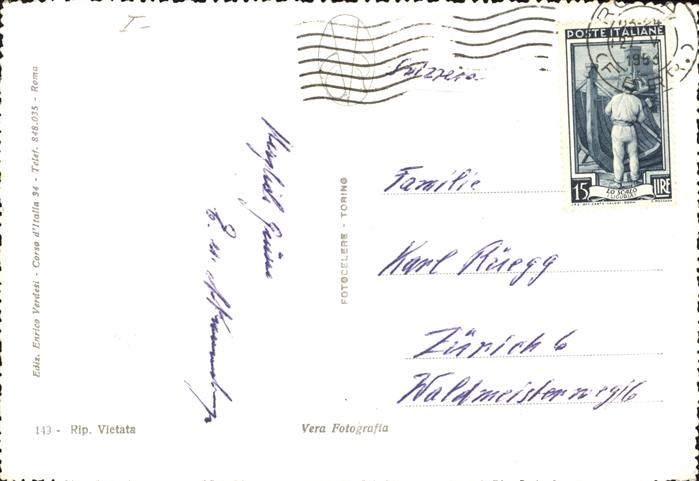 I-
Svizzera
POSTE ITALIANE
1953
15 LIRE
LO SCALO
Familie
Karl Rüegg
Zürich 6
Waldmeisterweg 6
Herzliche Grüsse
FOTOCELERE - TORINO
Ediz. Enrico Verdesi - Corso d'Italia 34 - Telef. 848.035 - Roma
149 - Rip. Vietata
Vera Fotografia